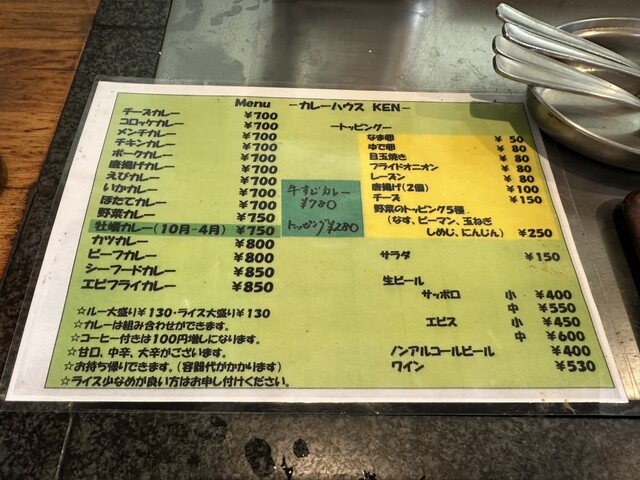 Menu －カレーハウス KEN－
チーズカレー ￥700
コロッケカレー ￥700
メンチカレー ￥700
チキンカレー ￥700
ポークカレー ￥700
唐揚げカレー ￥700
えびカレー ￥700
いかカレー ￥700
ほたてカレー ￥700
野菜カレー ￥750
牡蠣カレー(10月-4月) ￥750
カツカレー ￥800
ビーフカレー ￥800
シーフードカレー ￥850
エビフライカレー ￥850
牛すじカレー
￥780
トッピング￥280
ートッピングー
なま卵 ￥ 50
ゆで卵 ￥ 80
目玉焼き ￥ 80
フライドオニオン ￥ 80
レーズン ￥ 80
唐揚げ(2個) ￥100
チーズ ￥150
野菜のトッピング5種
(なす、ピーマン、玉ねぎ
しめじ、にんじん) ￥250
サラダ ￥150
生ビール
サッポロ 小 ￥400
中 ￥550
エビス 小 ￥450
中 ￥600
ノンアルコールビール ￥400
ワイン ￥530
☆ルー大盛り￥130・ライス大盛り￥130
☆カレーは組み合わせができます。
☆コーヒー付きは100円増しになります。
☆甘口、中辛、大辛がございます。
☆お持ち帰りできます。(容器代がかかります)
☆ライス少なめが良い方はお申し付けください。